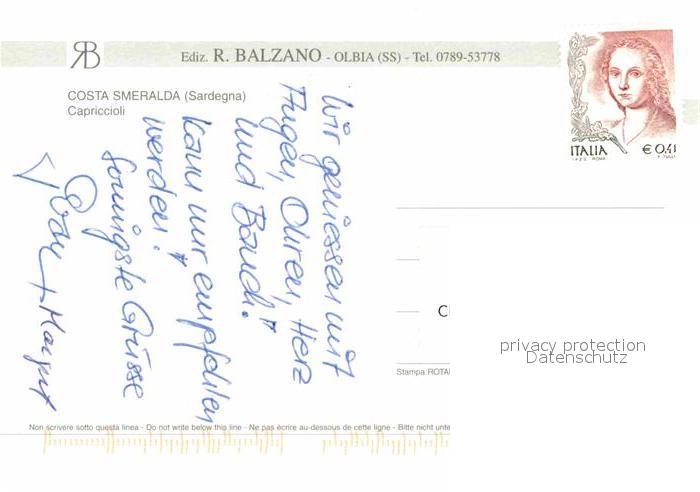 RB
Ediz. R. BALZANO - OLBIA (SS) - Tel. 0789-53778
COSTA SMERALDA (Sardegna)
Capriccioli
Wir geniessen mit
Augen, Ohren, Herz
und Bauch!
Kann nur empfohlen
werden!
Sonnigste Grüsse
+ Margrit
ITALIA
€ 0,41
I.P.Z.S. ROMA
F. TULLI
C
privacy protection
Datenschutz
Stampa: ROTA
Non scrivere sotto questa linea - Do not write below this line - Ne pas écrire au-dessous de cette ligne - Bitte nicht unte